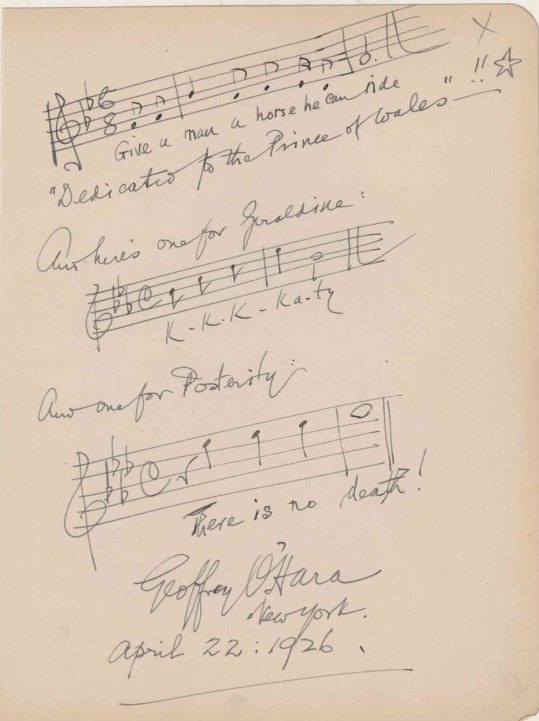 Give a man a horse he can ride
"Dedicated to the Prince of Wales" — !!
And here's one for Geraldine:
K-K-K-Ka-ty
And one for Posterity:
There is no death!
Geoffrey O'Hara
New York.
April 22: 1926.